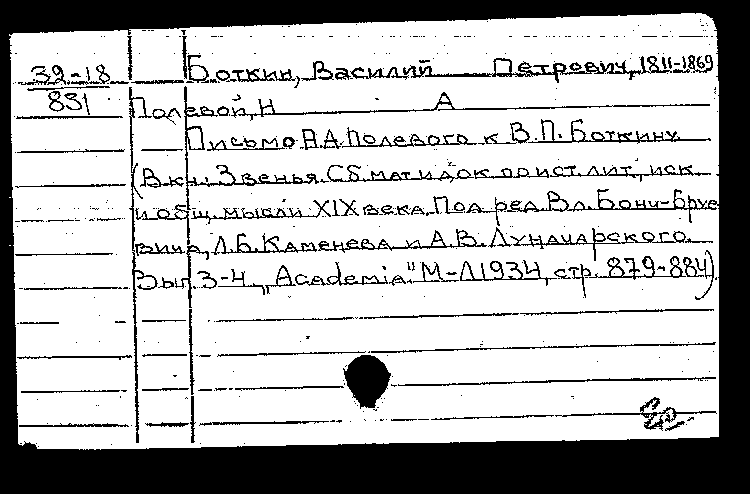 39-18 Боткин, Василий Петрович, 1811-1869
831 Полевой, Н А
Письмо Н.А. Полевого к В.П. Боткину
(В кн: Звенья. Сб. мат и док по ист. лит, иск
и общ. мысли XIX века. Под ред. Вл. Бонч-Бруе
вича, Л.Б. Каменева и А.В. Луначарского.
Вып 3-4 „Academia." М-Л 1934, стр. 879-884)